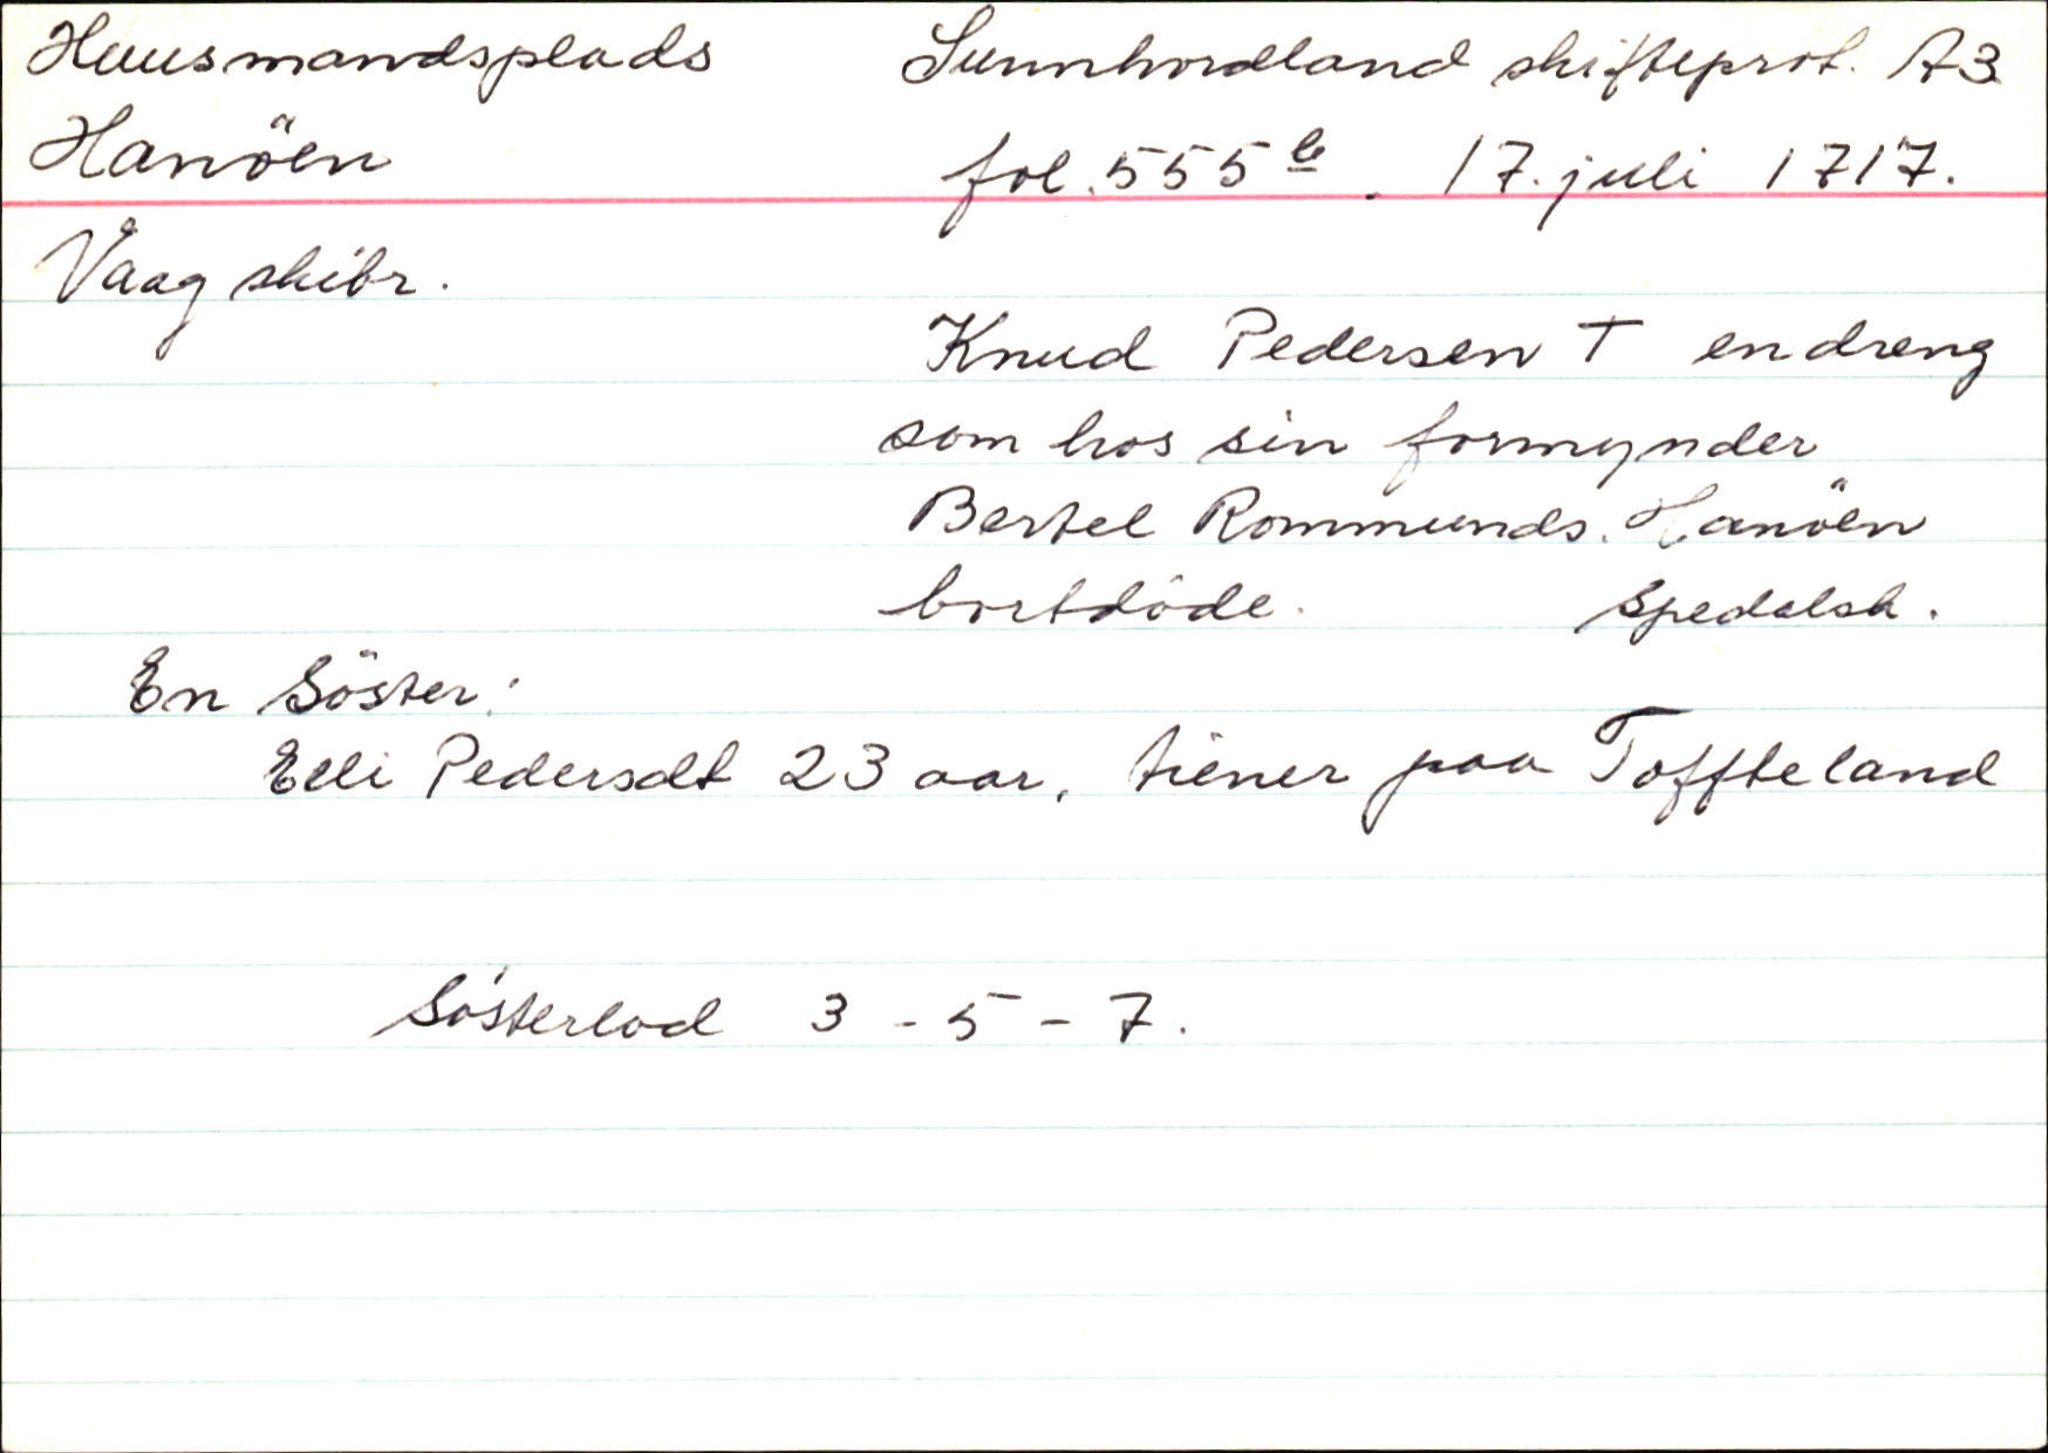 Huusmandsplads Sunnhordland skifteprot. A3
Hanöen fol. 555b. 17. juli 1717.
Vaag skibr.
Knud Pedersen † en dreng
som hos sin formynder
Bertel Rommunds. Hanöen
bortdöde. spedalsk.
En Söster:
Eli Pedersdt 23 aar, tiener paa Toffteland
Sösterlod 3 - 5 - 7.